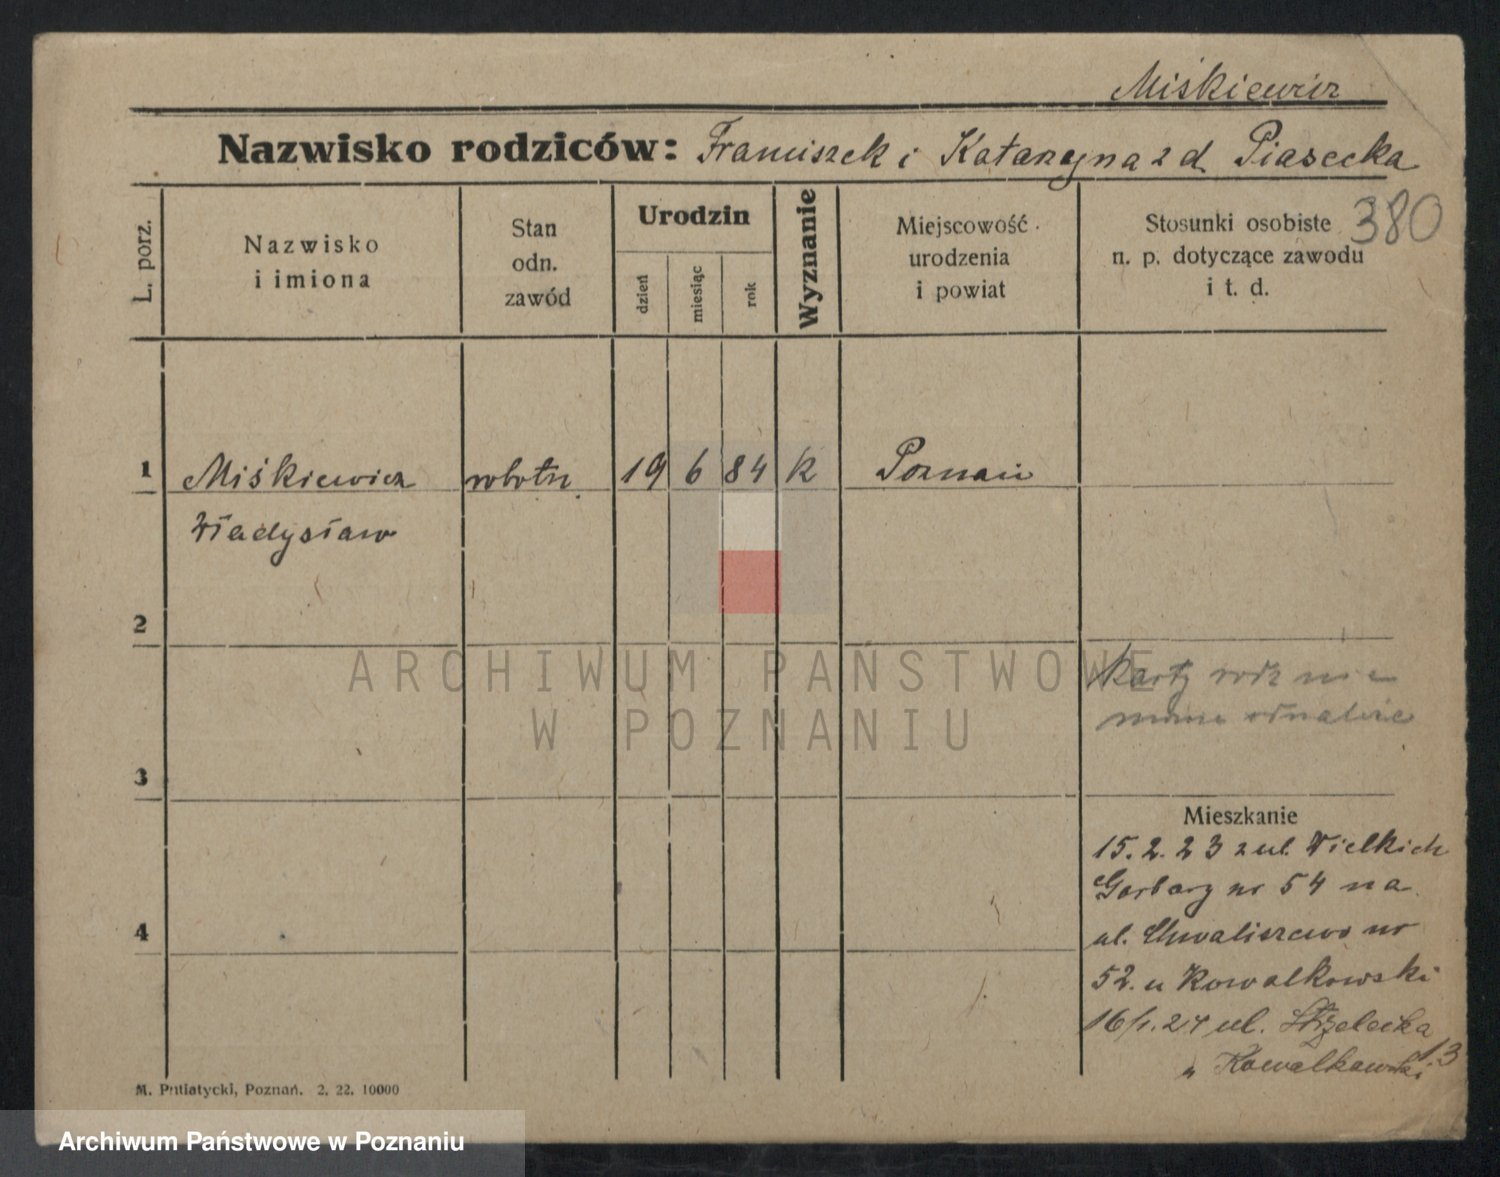 Miśkiewicz
Nazwisko rodziców: Franciszek i Katarzyna z d. Piasecka
380
L. porz.
Nazwisko
i imiona
Stan
odn.
zawód
Urodzin
dzień
miesiąc
rok
Wyznanie
Miejscowość
urodzenia
i powiat
Stosunki osobiste
n. p. dotyczące zawodu
i t. d.
1 Miśkiewicz robotn 19 6 84 k Poznań
Władysław
2
Karty rodz nie
można odnaleźć
3
Mieszkanie
15. 2. 23 z ul. Wielkich
Garbary nr 54 na
4
ul. Chwaliszewo nr
52. u Kowalkowski
16/1. 24 ul. Strzelecka
13
u Kowalkowski
M. Putiatycki, Poznań. 2. 22. 10000
ARCHIWUM PAŃSTWOWE
W POZNANIU
Archiwum Państwowe w Poznaniu